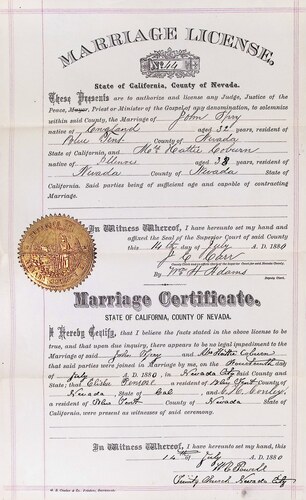 MARRIAGE LICENSE,
No. 44
State of California, County of Nevada.
These Presents are to authorize and license any Judge, Justice of the
Peace, Mayor, Priest or Minister of the Gospel of any denomination, to solemnize
within said County, the Marriage of John Spry
native of England aged 32 years, resident of
Blue Tent County of Nevada
State of California, and Mrs Hattie Coburn
native of Illinois aged 38 years, resident of
Nevada County of Nevada State of
California. Said parties being of sufficient age and capable of contracting
Marriage.
In Witness Whereof, I have hereunto set my hand and
affixed the Seal of the Superior Court of said County
this 14th day of July A. D. 1880
J. C. Carr
By Wm H Adams
Deputy Clerk.
Marriage Certificate.
STATE OF CALIFORNIA, COUNTY OF NEVADA.
I Hereby Certify, that I believe the facts stated in the above license to be
true, and that upon due inquiry, there appears to be no legal impediment to the
Marriage of said John Spry and Mrs Hattie Coburn
that said parties were joined in Marriage by me, on the fourteenth day
of July A. D. 1880, in Nevada City said County and
State; that a resident of Blue Tent County of
Nevada State of Cal and
a resident of Blue Tent County of Nevada State of
California, were present as witnesses of said ceremony.
In Witness Whereof, I have hereunto set my hand, this
14th July A. D. 1880
Trinity Church Nevada City